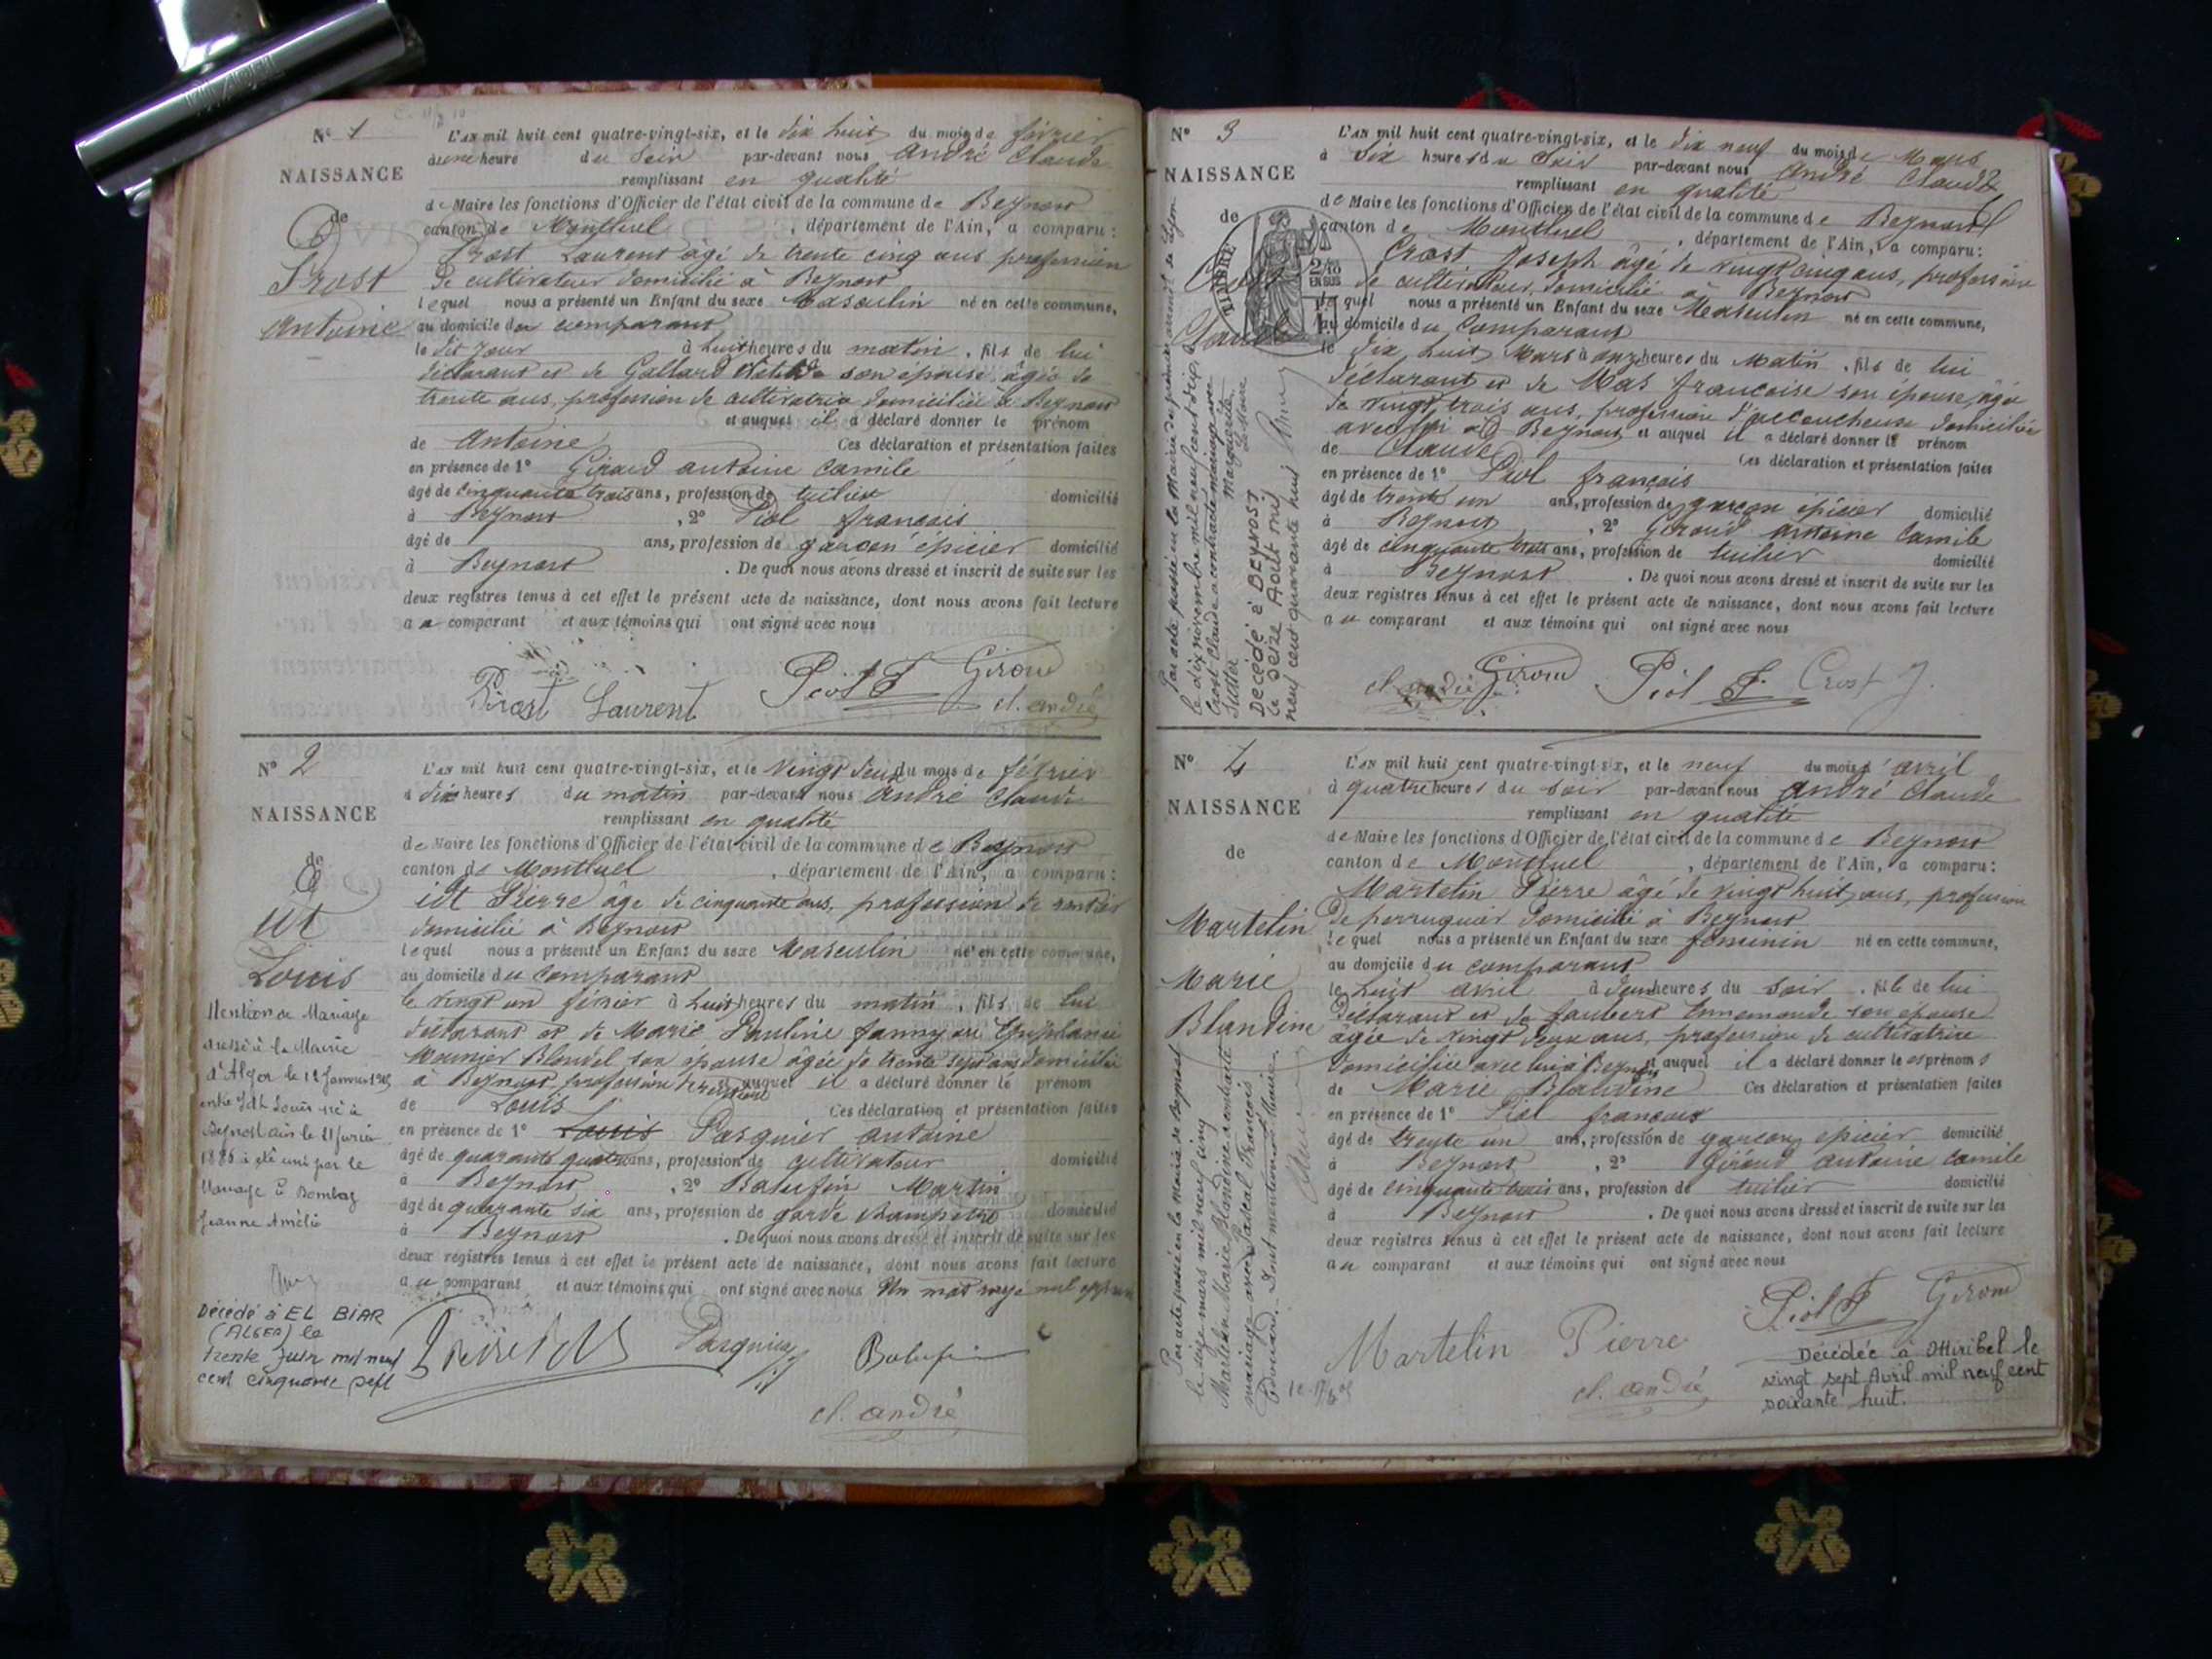 N° 1
NAISSANCE
de
Antoine
L'AN mil huit cent quatre-vingt-six, et le dix huit du mois de février
à une heure du Soir par-devant nous André Claude
remplissant en qualité
de Maire les fonctions d'Officier de l'état civil de la commune de Beynost
canton de Montluel, département de l'Ain, a comparu:
Laurent âgé de trente cinq ans profession
de cultivateur domicilié à Beynost
lequel nous a présenté un Enfant du sexe Masculin né en cette commune,
au domicile du comparant
le dit jour à huit heures du matin, fils de lui
déclarant et de Gallard son épouse, âgée de
trente ans, profession de cultivatrice domiciliée à Beynost
et auquel il a déclaré donner le prénom
de Antoine Ces déclaration et présentation faites
en présence de 1° Giroud antoine Camile
âgé de cinquante trois ans, profession de tuilier domicilié
à Beynost, 2° Piol françois
âgé de ans, profession de garçon épicier domicilié
à Beynost. De quoi nous avons dressé et inscrit de suite sur les
deux registres tenus à cet effet le présent acte de naissance, dont nous avons fait lecture
au comparant et aux témoins qui ont signé avec nous
Laurent Piol F Giroud
cl. andré
N° 2
NAISSANCE
de
Idt
Louis
Mention de Mariage
dressé à la Mairie
d'Alger le 12 Janvier
entre Idt Louis né à
Beynost ain le 21 février
1886 a été uni par le
Mariage à Bombaz
Jeanne Amélie
Décédé à EL BIAR
(ALGER) le
trente Juin mil neuf
cent cinquante sept
L'AN mil huit cent quatre-vingt-six, et le vingt deux du mois de février
à dix heures du matin par-devant nous André Claude
remplissant en qualité
de Maire les fonctions d'Officier de l'état civil de la commune de Beynost
canton de Montluel, département de l'Ain, a comparu:
idt Pierre âgé de cinquante ans, profession de rentier
domicilié à Beynost
lequel nous a présenté un Enfant du sexe Masculin né en cette commune,
au domicile du comparant
le vingt un février à huit heures du matin, fils de lui
déclarant et de Marie Pauline fanny ou
Meunier Blondel son épouse âgée de trente sept ans domiciliée
à Beynost profession et auquel il a déclaré donner le prénom
de Louis Ces déclaration et présentation faites
en présence de 1° Louis Pasquier antoine
âgé de quarante quatre ans, profession de cultivateur domicilié
à Beynost, 2° Balufin Martin
âgé de quarante six ans, profession de garde champêtre domicilié
à Beynost. De quoi nous avons dressé et inscrit de suite sur les
deux registres tenus à cet effet le présent acte de naissance, dont nous avons fait lecture
au comparant et aux témoins qui ont signé avec nous Un mot rayé nul
Pasquier Balufin
cl. andré
N° 3
NAISSANCE
de
Crost
Claude
TIMBRE
2/10
EN SUS
le dix novembre mil neuf cent dix
Crost Claude a contracté mariage avec
Marguerite
Décédé à BEYNOST
le Seize Août mil
neuf cent quarante huit
L'AN mil huit cent quatre-vingt-six, et le dix neuf du mois de Mars
à Six heures du Soir par-devant nous André Claude
remplissant en qualité
de Maire les fonctions d'Officier de l'état civil de la commune de Beynost
canton de Montluel, département de l'Ain, a comparu:
Crost Joseph âgé de vingt cinq ans, profession
de cultivateur, domicilié à Beynost
lequel nous a présenté un Enfant du sexe Masculin né en cette commune,
au domicile du Comparant
le dix huit Mars à onze heures du Matin, fils de lui
déclarant et de Mas françoise son épouse, âgée
de vingt trois ans, profession d'accoucheuse domiciliée
avec lui à Beynost, et auquel il a déclaré donner le prénom
de Claude Ces déclaration et présentation faites
en présence de 1° Piol françois
âgé de trente un ans, profession de garçon épicier domicilié
à Beynost, 2° Giroud antoine Camile
âgé de cinquante trois ans, profession de tuilier domicilié
à Beynost. De quoi nous avons dressé et inscrit de suite sur les
deux registres tenus à cet effet le présent acte de naissance, dont nous avons fait lecture
au comparant et aux témoins qui ont signé avec nous
cl. andré Giroud Piol F. Crost J.
N° 4
NAISSANCE
de
Martelin
Marie
Blandine
Par acte passé en la Mairie de Beynost
le seize mars mil neuf cinq
Martelin Marie Blandine a contracté
mariage avec Pascal François
Edouard. Dont mention. Le Maire
L'AN mil huit cent quatre-vingt-six, et le neuf du mois d'avril
à quatre heures du soir par-devant nous André Claude
remplissant en qualité
de Maire les fonctions d'Officier de l'état civil de la commune de Beynost
canton de Montluel, département de l'Ain, a comparu:
Martelin Pierre âgé de vingt huit ans, profession
de perruquier domicilié à Beynost
lequel nous a présenté un Enfant du sexe féminin né en cette commune,
au domicile du comparant
le huit avril à deux heures du soir, fille de lui
déclarant et de Jaubert Ennemonde son épouse
âgée de vingt deux ans, profession de cultivatrice
domiciliée avec lui à Beynost et auquel il a déclaré donner les prénoms
de Marie Blandine Ces déclaration et présentation faites
en présence de 1° Piol françois
âgé de trente un ans, profession de garçon épicier domicilié
à Beynost, 2° Giroud antoine Camile
âgé de cinquante trois ans, profession de tuilier domicilié
à Beynost. De quoi nous avons dressé et inscrit de suite sur les
deux registres tenus à cet effet le présent acte de naissance, dont nous avons fait lecture
au comparant et aux témoins qui ont signé avec nous
Piol F Giroud
Martelin Pierre
cl. andré
Décédée à Miribel le
vingt sept Avril mil neuf cent
soixante huit.